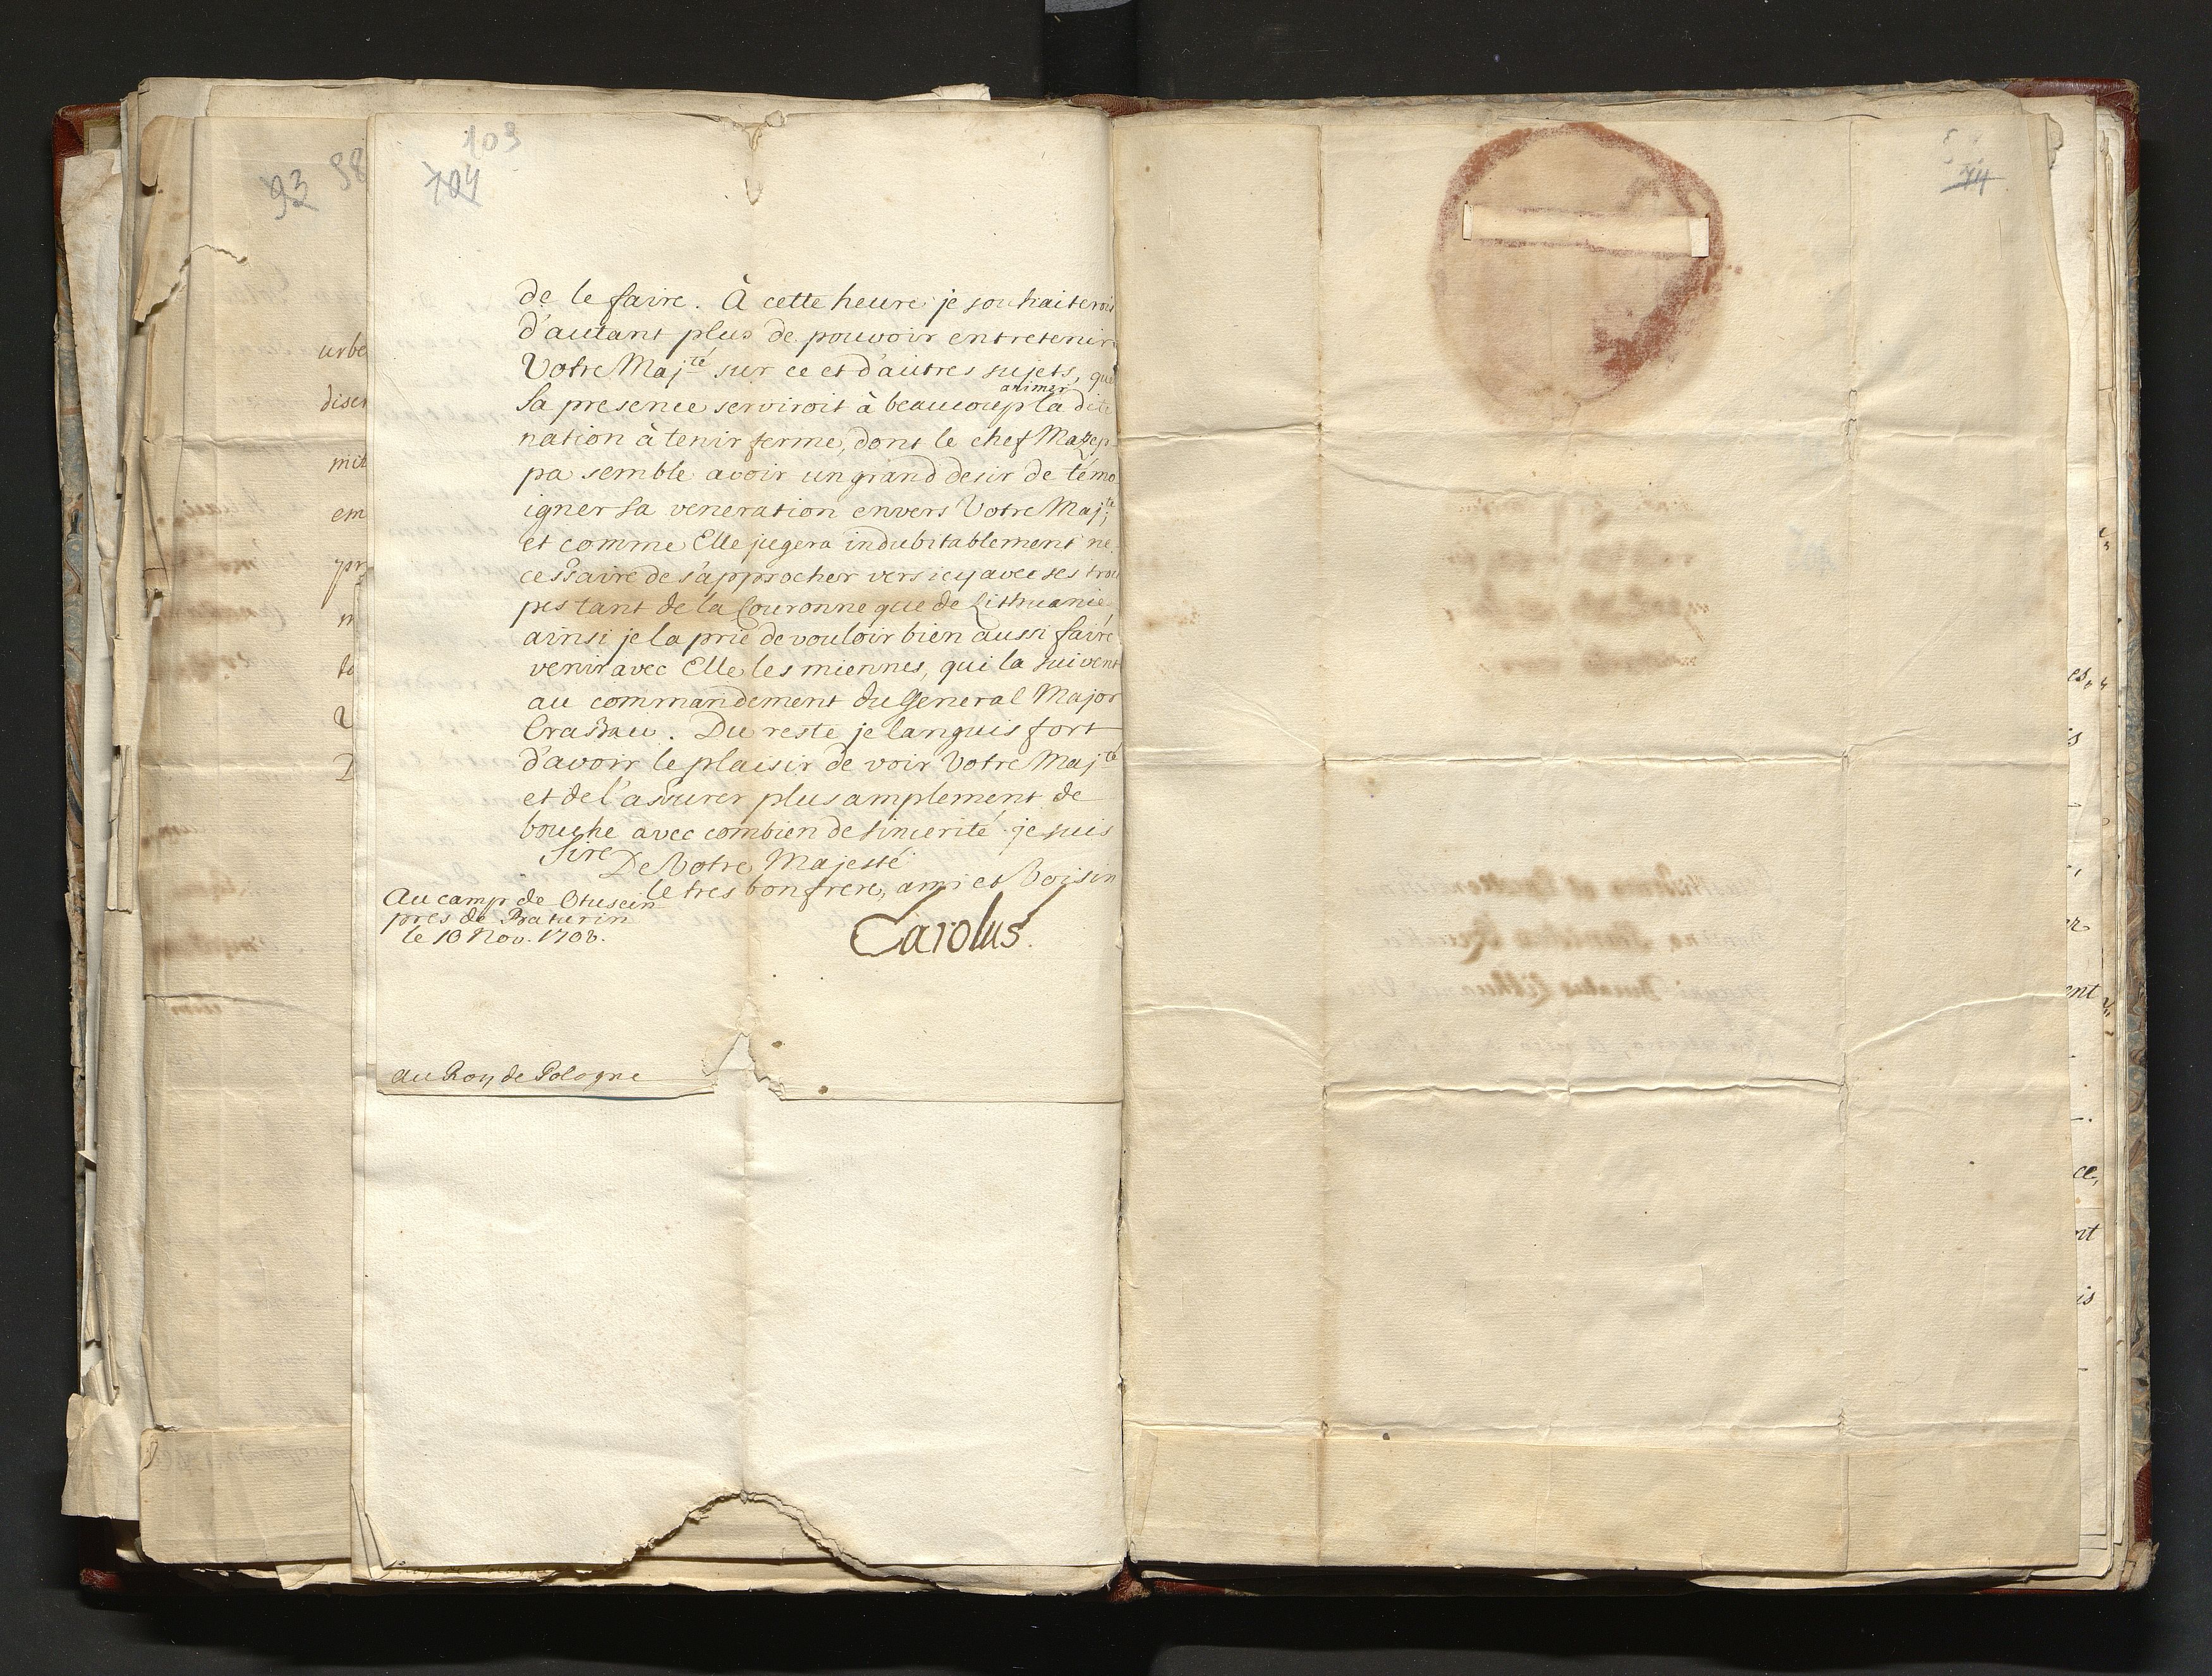 103
104
93 98
de le faire. À cette heure je souhaiterois
d'autant plus de pouvoir entretenir
Votre Maj.té sur ce et d'autres sujets, que
Sa presence serviroit à beaucoup animer la dite
nation à tenir ferme, dont le chef Mazep
pa semble avoir un grand desir de témo
igner sa veneration envers Votre Maj.té;
et comme Elle jugera indubitablement ne
cessaire de s'approcher vers icy avec ses trou
pes tant de la Couronne que de Lithuanie,
ainsi je la prie de vouloir bien aussi faire
venir avec Elle les miennes, qui la suivent
au commandement du General Major
Crassau. Du reste je languis fort
d'avoir le plaisir de voir Votre Maj.té
et de l'assurer plus amplement de
bouche avec combien de sincerité je suis
Sire
De Votre Majesté
le tres bon frere, ami et Voisin
Au camp de Otusein
pres de Baturin
le 10 Nov. 1708.
Carolus.
au Roy de Pologne
urbe
discr
mit
em
74
es,
is
er
ent
ce,
nt
is